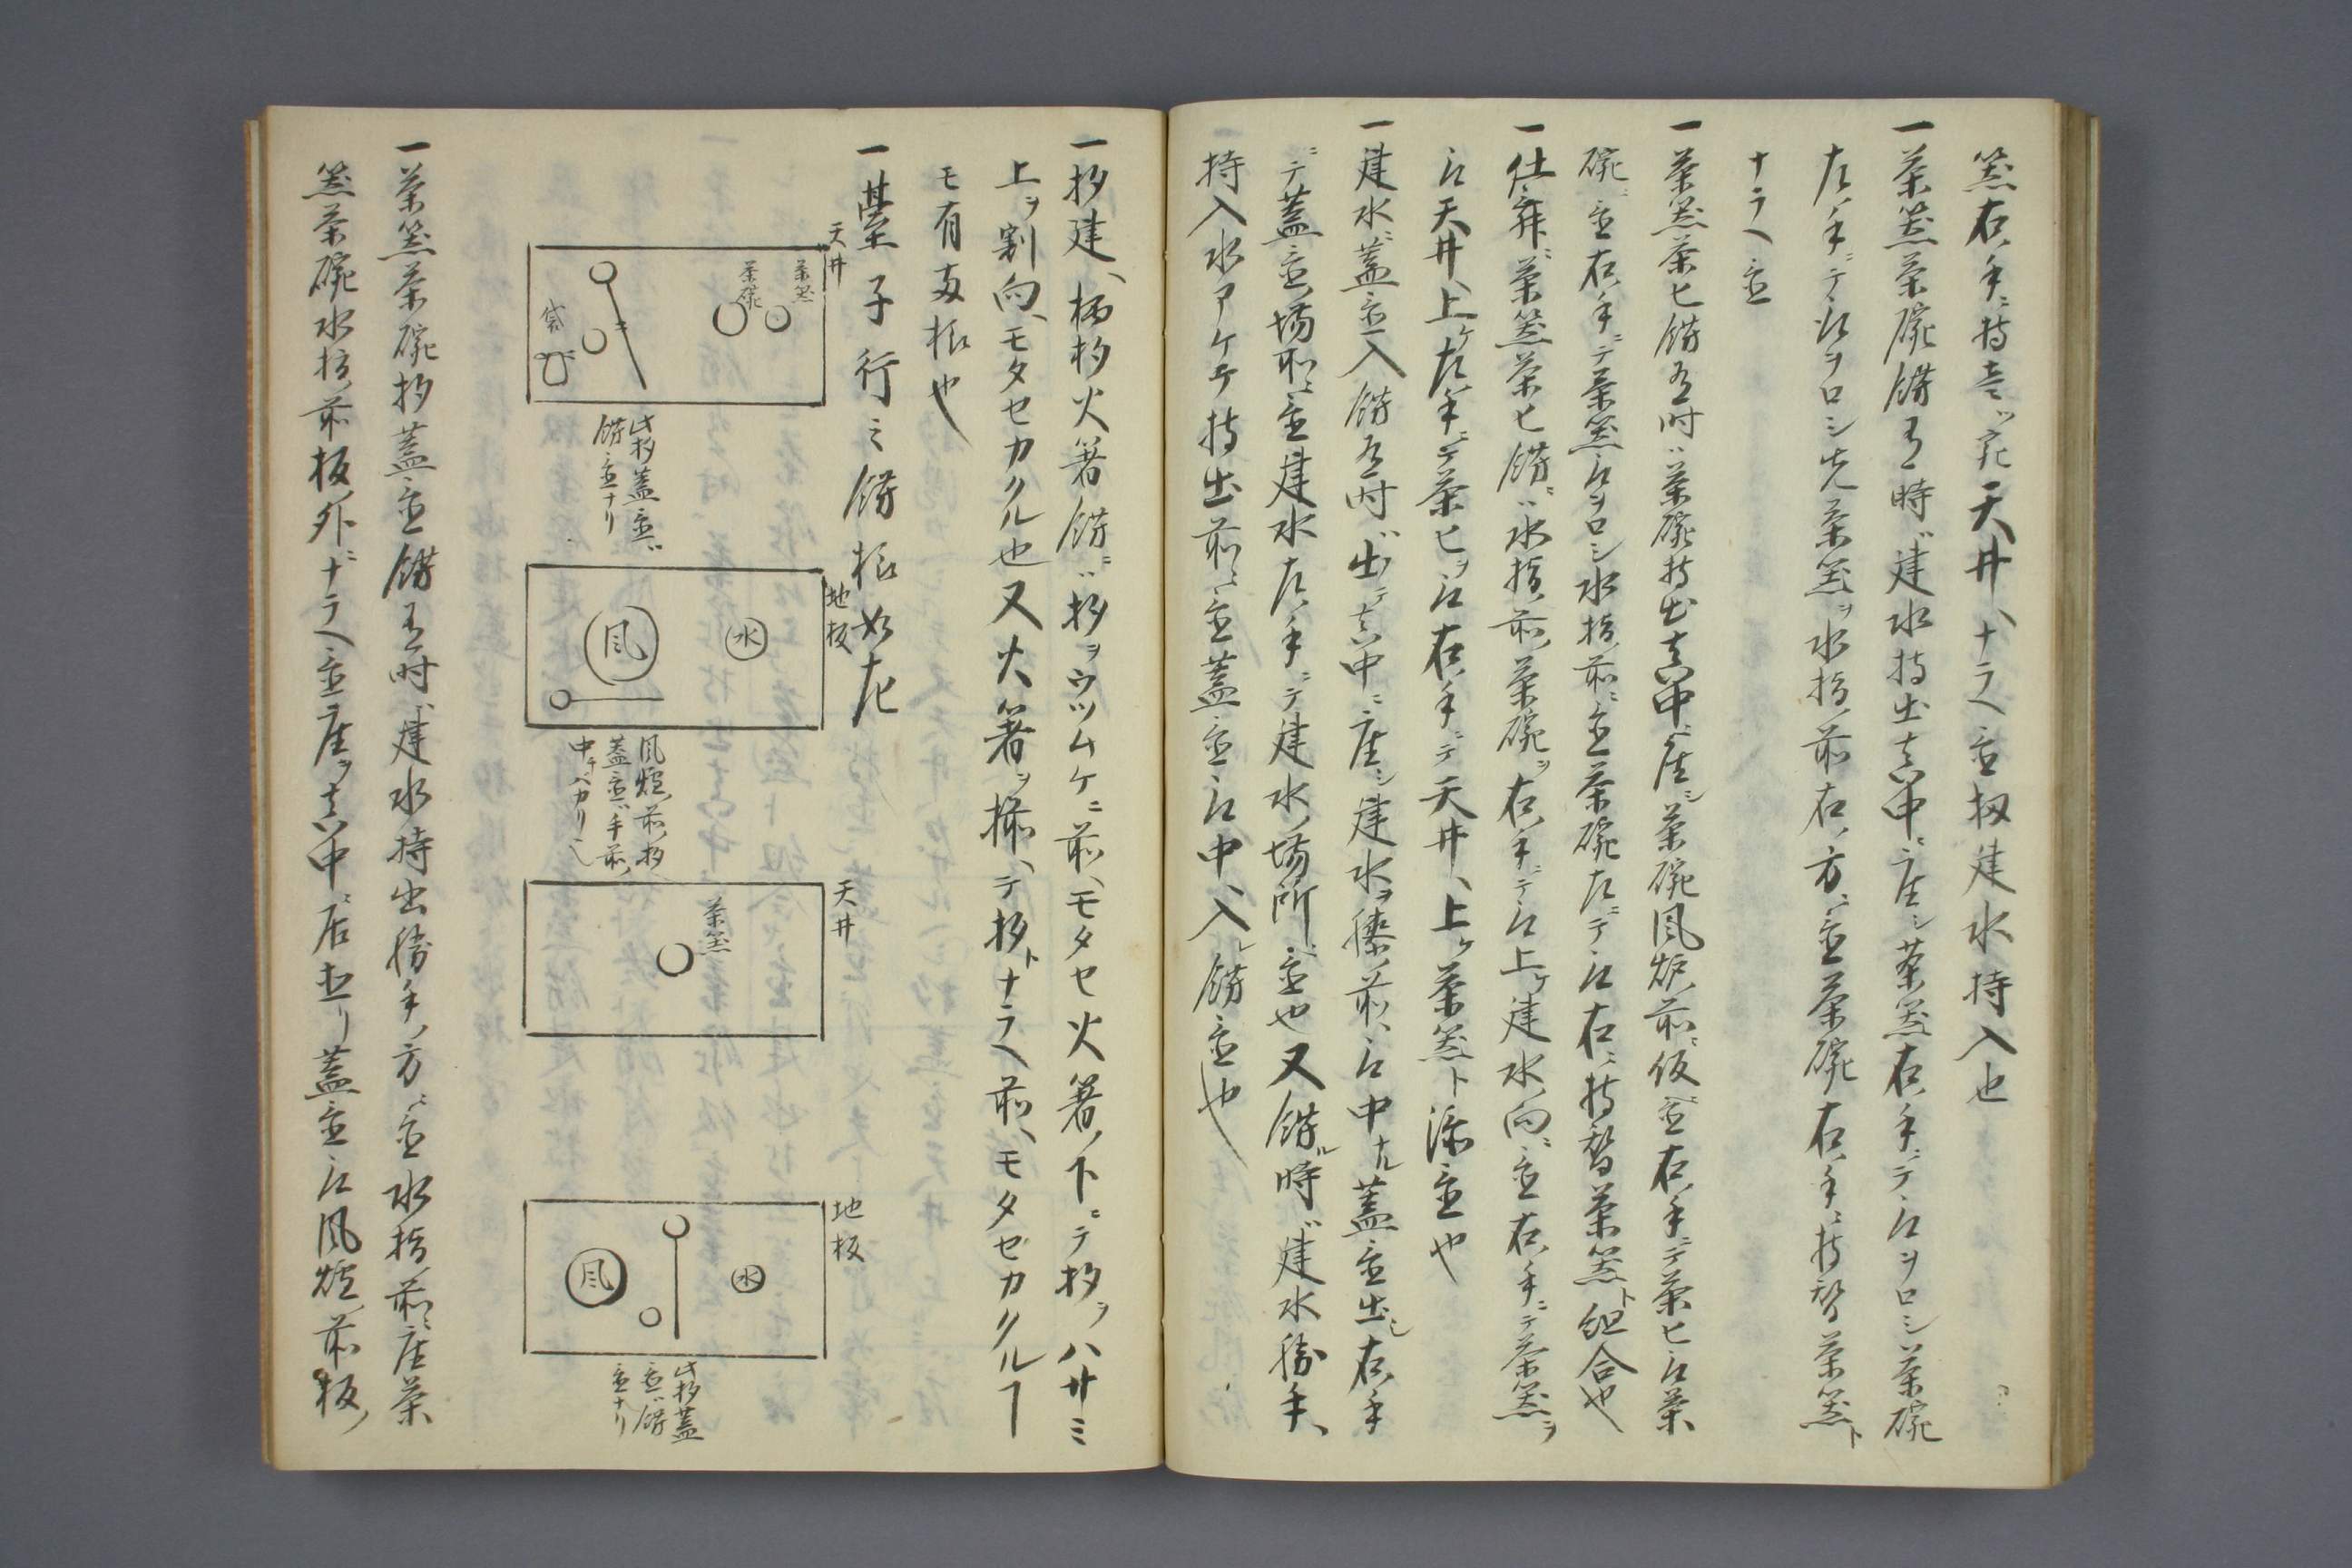 右ノ手ニ持天井ヘナラヘ置扨建水持入也
一茶箱茶碗餝有時ハ建水持出真中ニ座シ茶箱右ノ手ニテ取ヲロシ茶碗
左ノ手ニテ取ヲロシ先茶箱ヲ水指前右ノ方ニ置茶碗右ノ手ニ持替茶箱ト
ナラヘ置
一茶箱茶匕餝有時ハ茶碗持出真中ニ座シ茶碗風炉前ニ仮ニ置右ノ手ニテ茶匕取茶
碗ニ置右ノ手ニテ茶箱取ヲロシ水指前ニ置茶碗左ニテ取右ニ持替茶箱ト組合也
一仕舞ニ茶箱茶匕餝ハ水指前ノ茶碗ヲ右ノ手ニテ取上ケ建水ノ向ニ置右ノ手ニテ茶箱ヲ
取天井ヘ上ケ左ノ手ニテ茶匕ヲ取右ノ手ニテ天井ヘ上ケ茶箱ト添置也
一建水ニ蓋置入餝有時ハ出テ真中ニ座シ建水ヲ膝前ヘ取中ナル蓋置出シ右ノ手
ニテ蓋置ノ場所ニ置建水左ノ手ニテ建水ノ場所ニ置也又餝ル時ハ建水勝手ヘ
持入水アケテ持出前ニ置蓋置取中ヘ入レ餝置也
一杓建ヘ柄杓火箸餝ニハ杓ヲウツムケニ前ヘモタセ火箸ノ下ニテ杓ヲハサミ
上ヲ割向ヘモタセカクル也又火箸ヲ揃ヘテ杓トナラヘ前ヘモタセカクルヿ
モ有両様也
一薹子行ミ餝様如左
天井
茶箱
茶碗
袋
此杓蓋置ハ
餝置ナリ
地板
水
風
風炉ノ前ノ杓
蓋置ハ手前ノ
中ハカリ也
天井
茶箱
地板
水
風
此杓蓋
置ハ餝
置ナリ
一茶箱茶碗杓蓋置餝有時ハ建水持出勝手ノ方ニ置水指前ニ座茶
箱茶碗水指ノ前板外ニナラヘ置座ヲ真中ニ居直リ蓋置取風炉ノ前板ノ